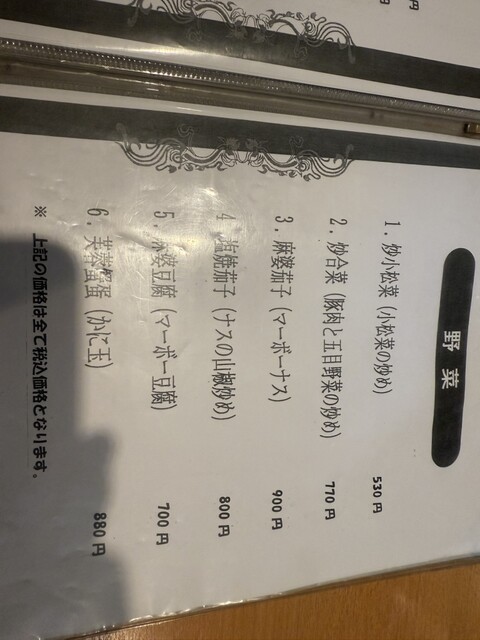 野菜
1. 炒小松菜 (小松菜の炒め) 530 円
2. 炒合菜 (豚肉と五目野菜の炒め) 770 円
3. 麻婆茄子 (マーボーナス) 900 円
4. 塩焼茄子 (ナスの山椒炒め) 800 円
5. 麻婆豆腐 (マーボー豆腐) 700 円
6. 芙蓉蟹蛋 (かに玉) 880 円
※ 上記の価格は全て税込価格となります。
円
円